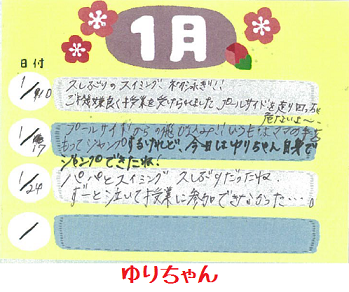 1月
日付
1/10
久しぶりのスイミング
ご機嫌良く授業を受けられました プールサイドを走り回っちゃ
危ないよ〜
1/17
プールサイドからの飛び込み!! いつもはママの手を
もってジャンプするけれど、今日はゆりちゃん自身で
ジャンプできたね!
1/24
パパとスイミング 久しぶりだったね
ずーと泣いて授業に参加できなかった…。
/
ゆりちゃん